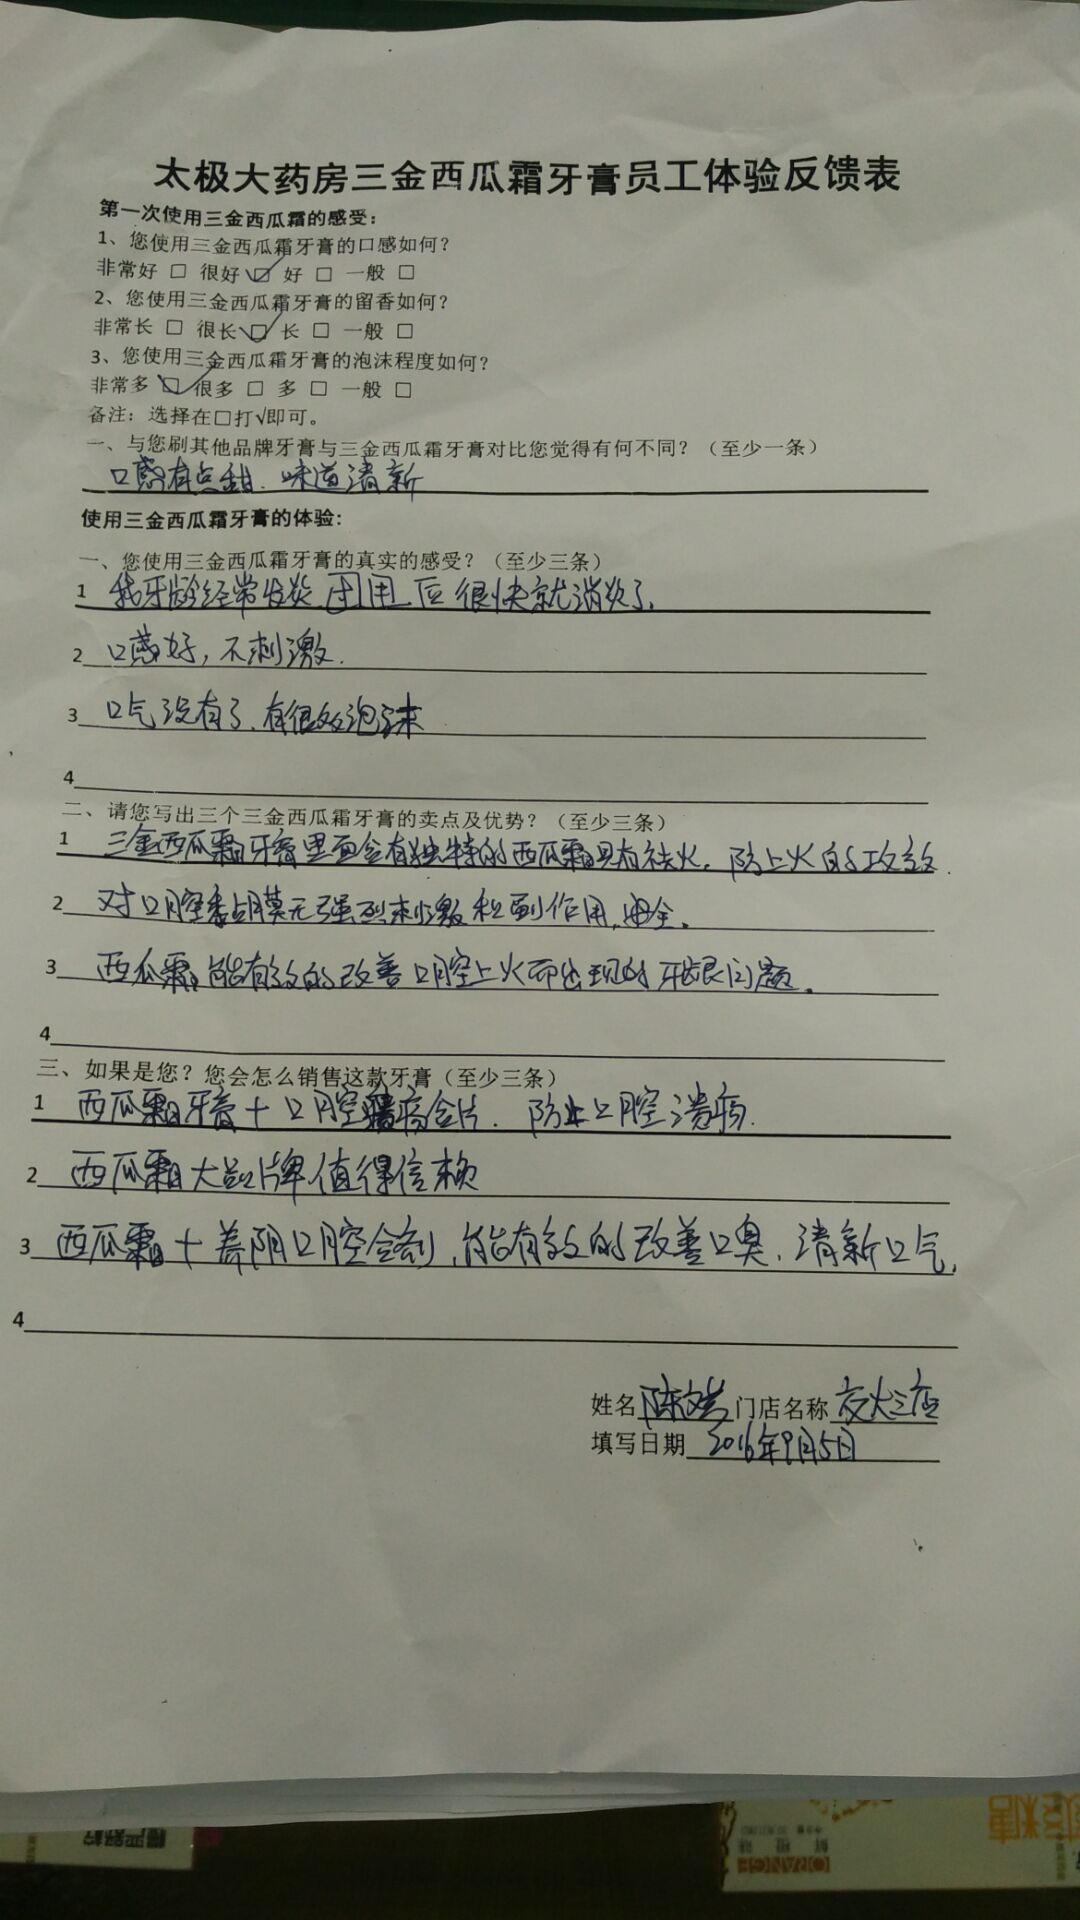 太极大药房三金西瓜霜牙膏员工体验反馈表
第一次使用三金西瓜霜的感受：
1、您使用三金西瓜霜牙膏的口感如何？
非常好 □ 很好 ☑ 好 □ 一般 □
2、您使用三金西瓜霜牙膏的留香如何？
非常长 □ 很长 ☑ 长 □ 一般 □
3、您使用三金西瓜霜牙膏的泡沫程度如何？
非常多 ☑ 很多 □ 多 □ 一般 □
备注：选择在□打√即可。
一、与您刷其他品牌牙膏与三金西瓜霜牙膏对比您觉得有何不同？（至少一条）
口感有点甜．味道清新
使用三金西瓜霜牙膏的体验：
一、您使用三金西瓜霜牙膏的真实的感受？（至少三条）
1 我牙龈经常发炎 用后很快就消炎了．
2 口感好，不刺激．
3 口气没有了．有很多泡沫
4
二、请您写出三个三金西瓜霜牙膏的卖点及优势？（至少三条）
1 三金西瓜霜牙膏里面含有独特的西瓜霜具有祛火．防上火的功效．
2 对口腔黏膜无强烈刺激和副作用，安全。
3 西瓜霜能有效的改善口腔上火而出现的牙龈问题。
4
三、如果是您？您会怎么销售这款牙膏（至少三条）
1 西瓜霜牙膏＋口腔溃疡含片．防止口腔溃疡．
2 西瓜霜大品牌值得信赖
3 西瓜霜＋养阴口腔合剂，能有效的改善口臭．清新口气．
4
姓名 门店名称
填写日期 2016年9月5日
ORANGE
鲜橙味